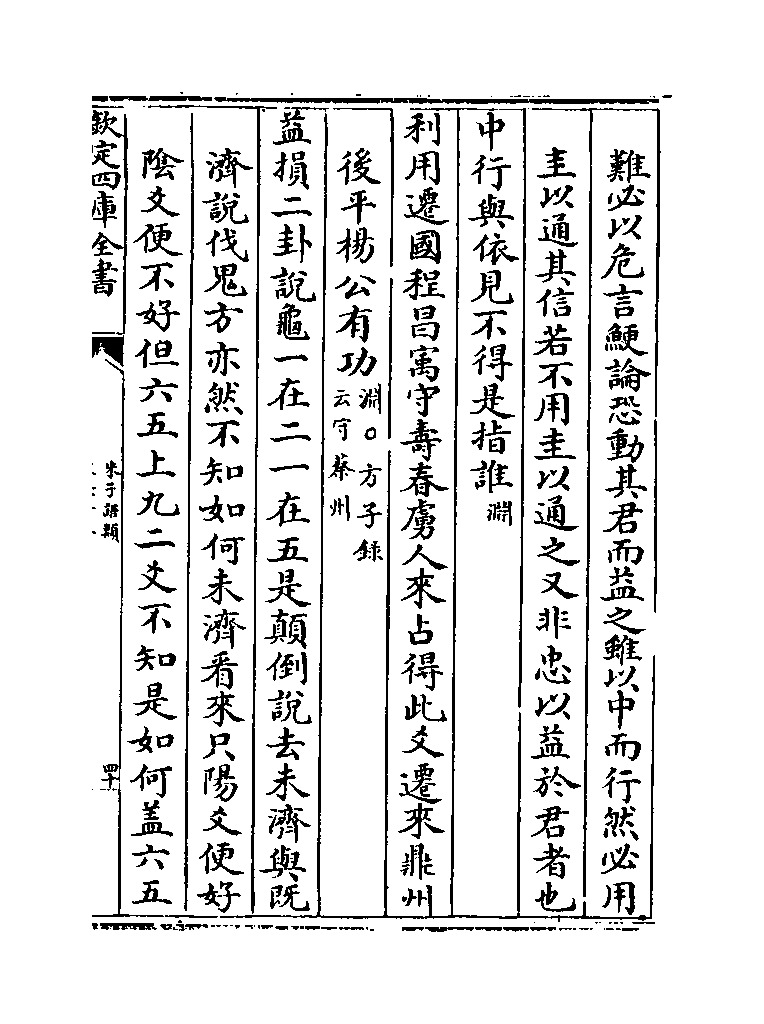 難必以危言鯁論恐動其君而益之雖以中而行然必用
圭以通其信若不用圭以通之又非忠以益於君者也
中行與依見不得是指誰淵
利用遷國程昌寓守壽春虜人來占得此爻遷來鼎州
後平楊公有功淵○方子録云守蔡州
益損二卦說龜一在二一在五是顛倒說去未濟與既
濟說伐鬼方亦然不知如何未濟看來只陽爻便好
陰爻便不好但六五上九二爻不知是如何盖六五
欽定四庫全書
朱子語類
四十